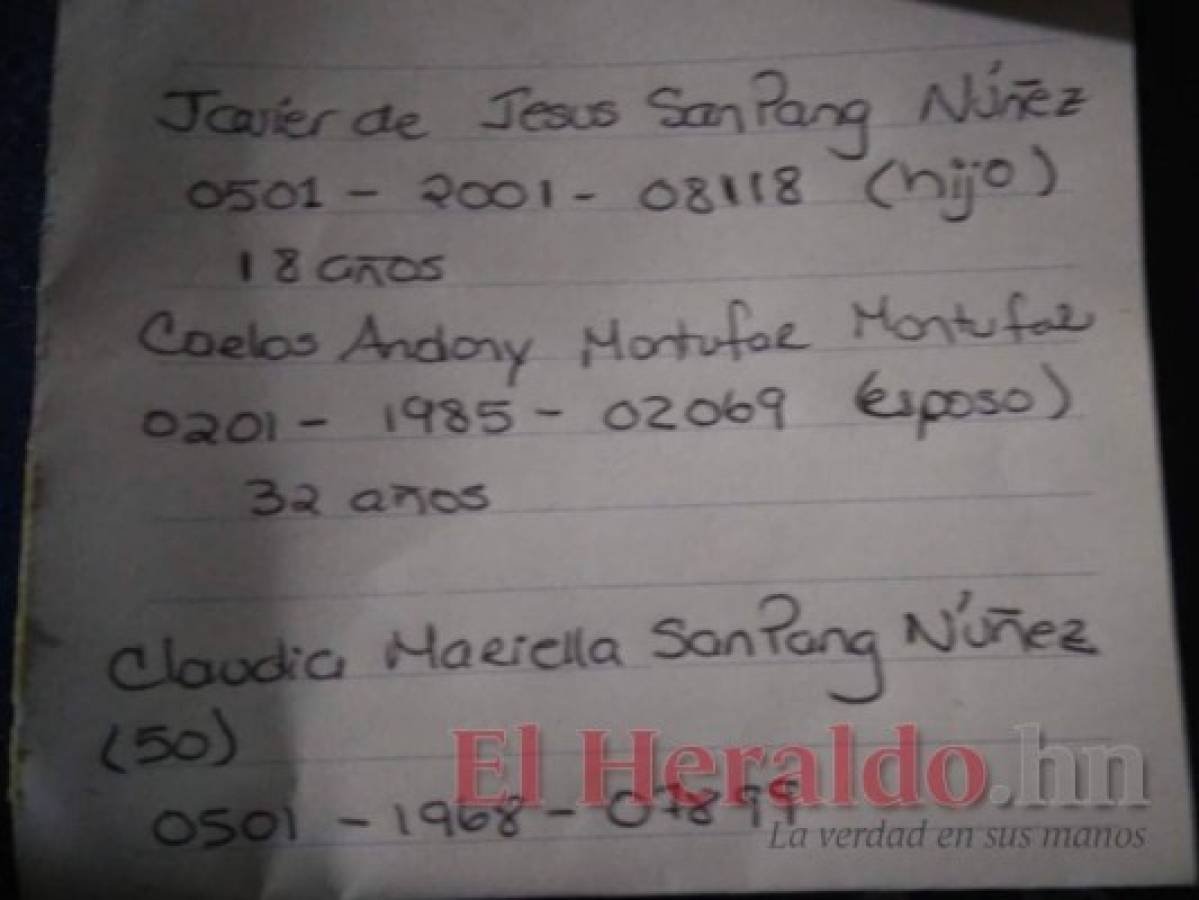 Javier de Jesus SanPang Núñez
0501 - 2001 - 08118 (hijo)
18 años
Carlos Andony Montufar Montufar
0201 - 1985 - 02069 (esposo)
32 años
Claudia Mariella SanPang Núñez
(50)
0501 - 1968 - 07899
El Heraldo.hn
La verdad en sus manos